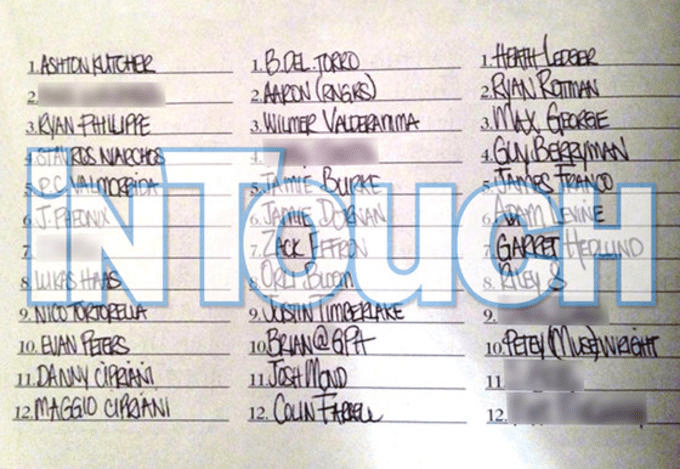 1. ASHTON KUTCHER
2.
3. RYAN PHILLIPPE
4. STAVROS NIARCHOS
5. P.C. VALMORBIDA
6. J. PHEONIX
7.
8. LUKAS HAAS
9. NICO TORTORELLA
10. EVAN PETERS
11. DANNY CIPRIANI
12. MAGGIO CIPRIANI
1. B. DEL TORRO
2. AARON (RNGRS)
3. WILMER VALDERAMMA
4.
5. JAMIE BURKE
6. JAMIE DORNAN
7. ZACK EFFRON
8. ORLY BLOOM
9. JUSTIN TIMBERLAKE
10. BRIAN@GPA
11. JOSH MOND
12. COLIN FARRELL
1. HEATH LEDGER
2. RYAN ROTTMAN
3. MAX GEORGE
4. GUY BERRYMAN
5. JAMES FRANCO
6. ADAM LEVINE
7. GARRET HEDLUND
8. RILEY S
9.
10. PETEY (MUSE) WRIGHT
11.
12.
iNTOUCH